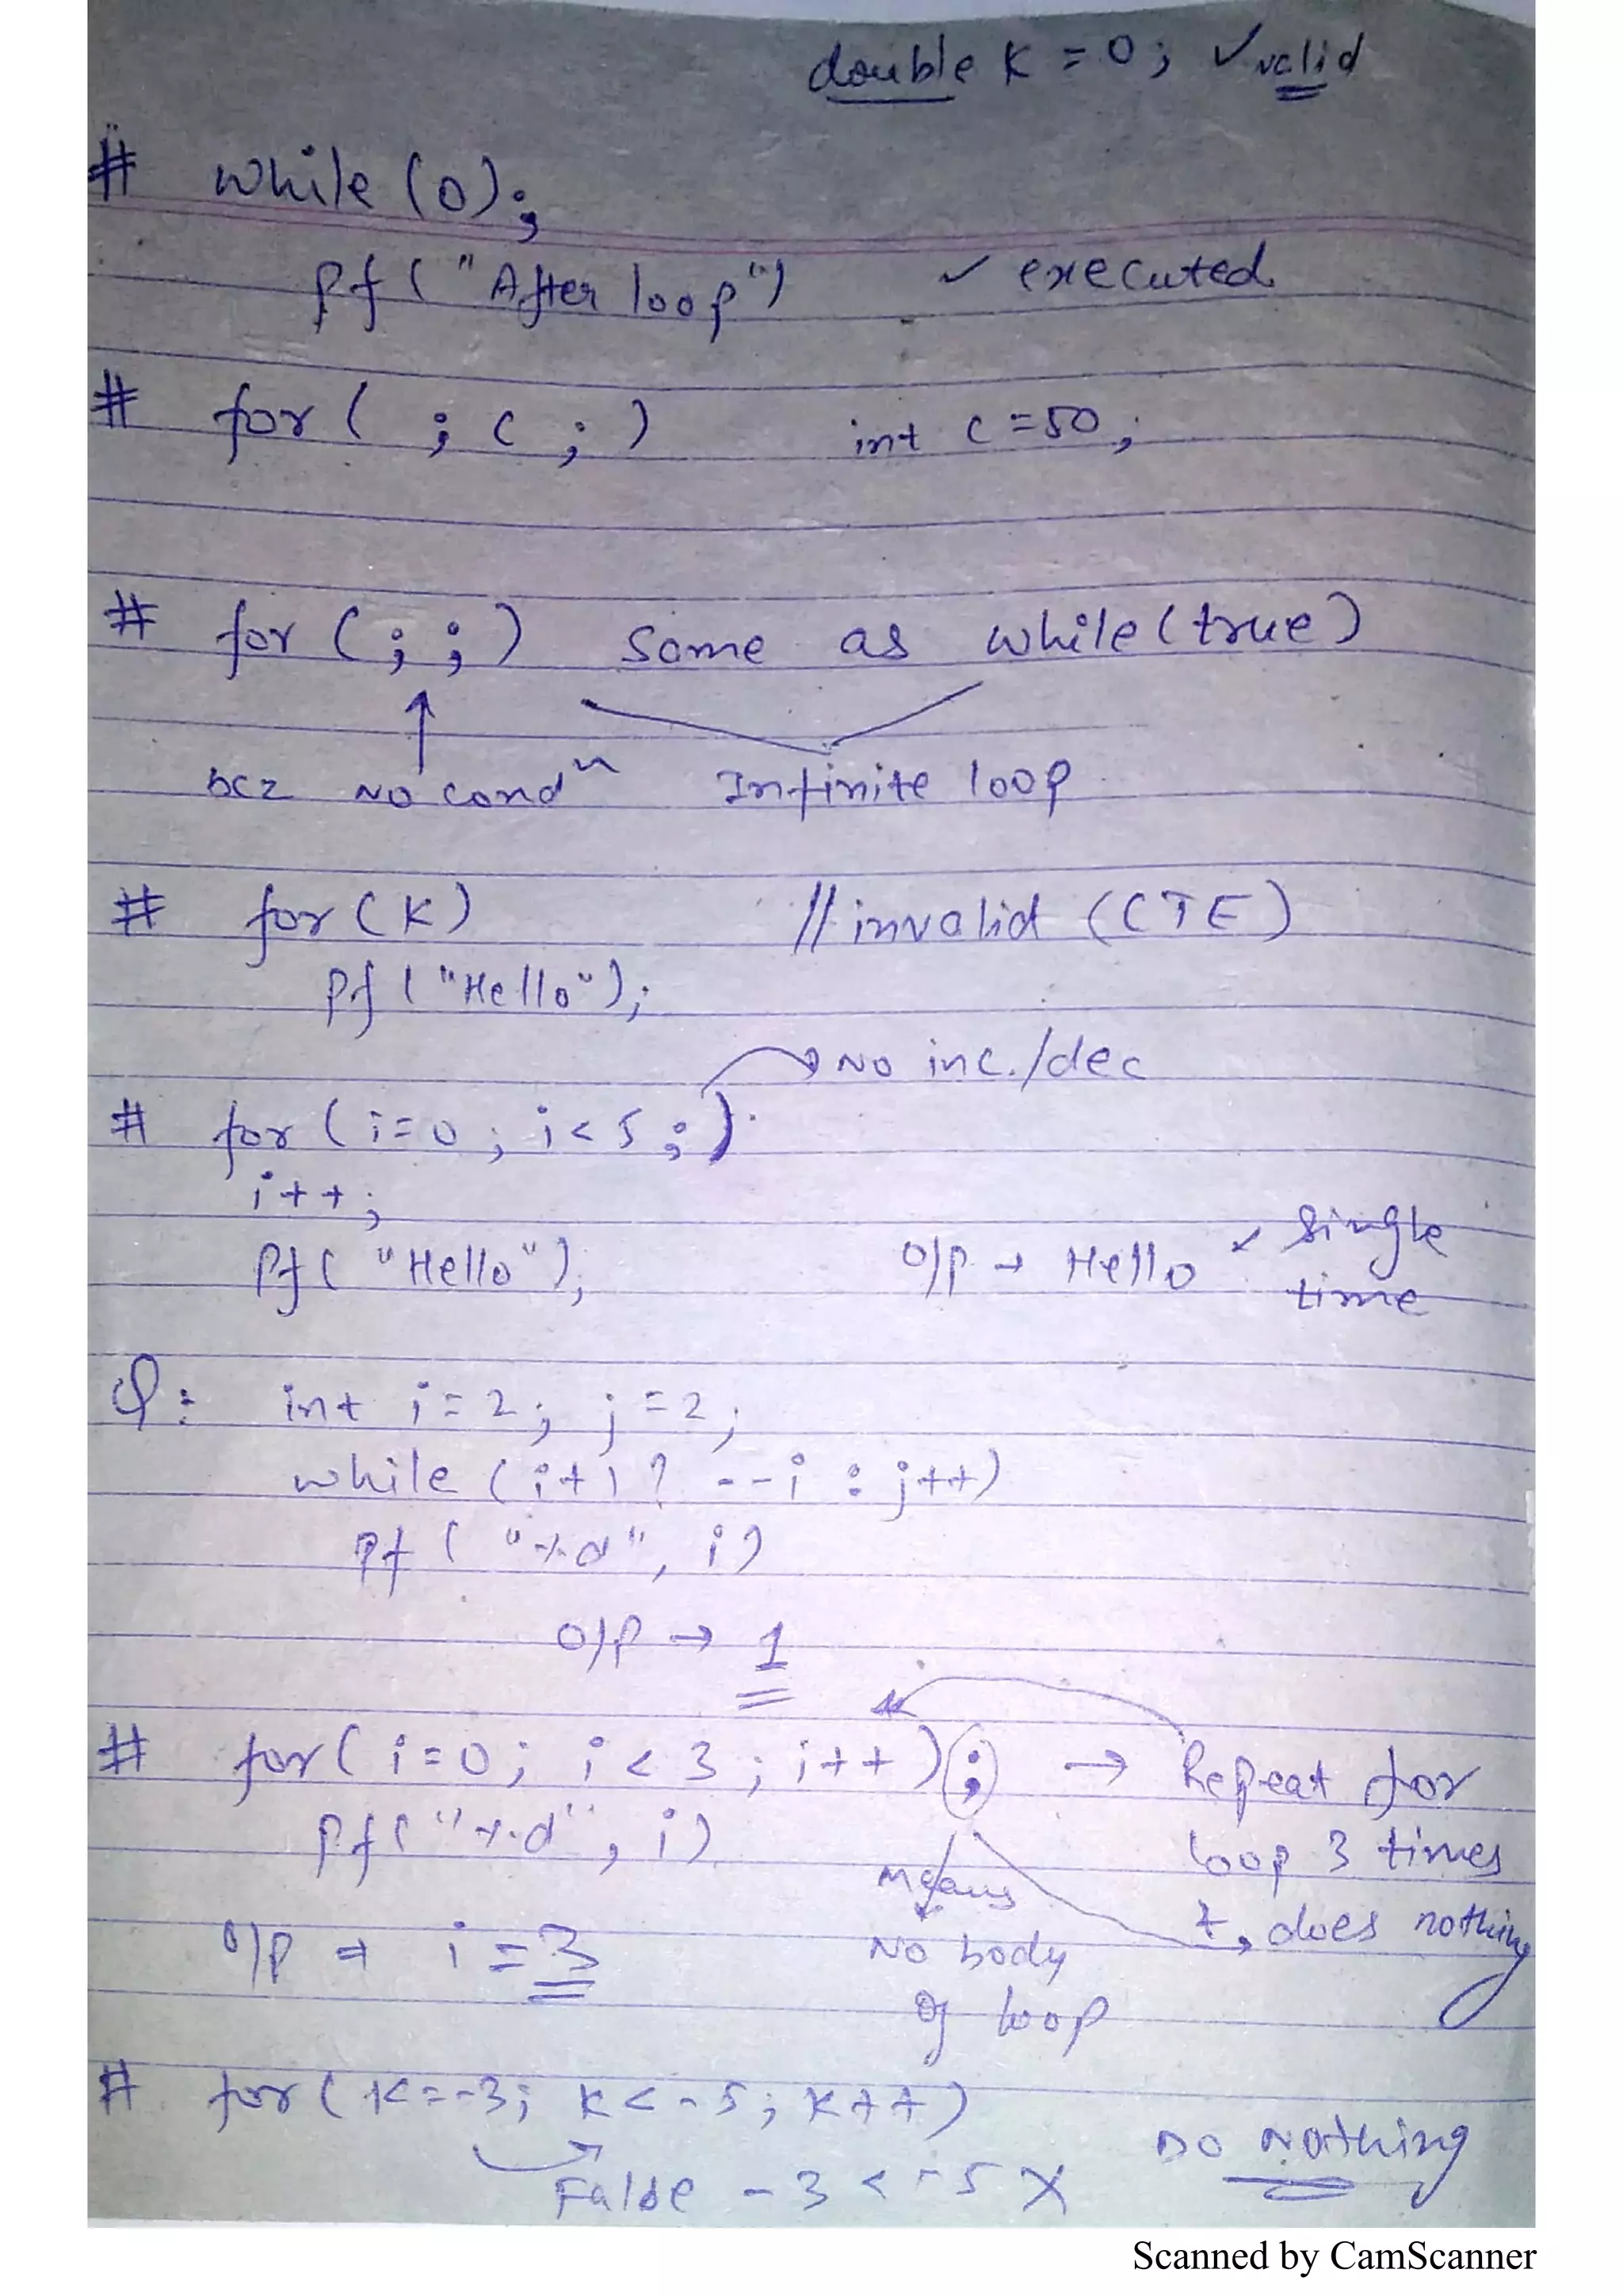 double K = 0; ✓ valid
# while (0);
pf ("After loop") ✓ executed
# for ( ; c ; ) int c = 50;
# for ( ; ; ) Same as while (true)
bcz NO condⁿ Infinite loop
# for (K) // invalid (CTE)
pf ("Hello");
→ NO inc./dec
# for (i=0; i<5; )
i++;
pf ("Hello"); o/p → Hello ✓ Single
time
Q: int i=2; j=2;
while (i+1 ? --i : j++)
pf ("%d", i)
o/p → 1
# for (i=0; i<3; i++) ; → Repeat for
pf ("%d", i) loop 3 times
Means & does nothing
o/p → i = 3 NO body
of loop
# for (K=-3; K<-5; K++)
DO Nothing
False -3 < -5 X
Scanned by CamScanner